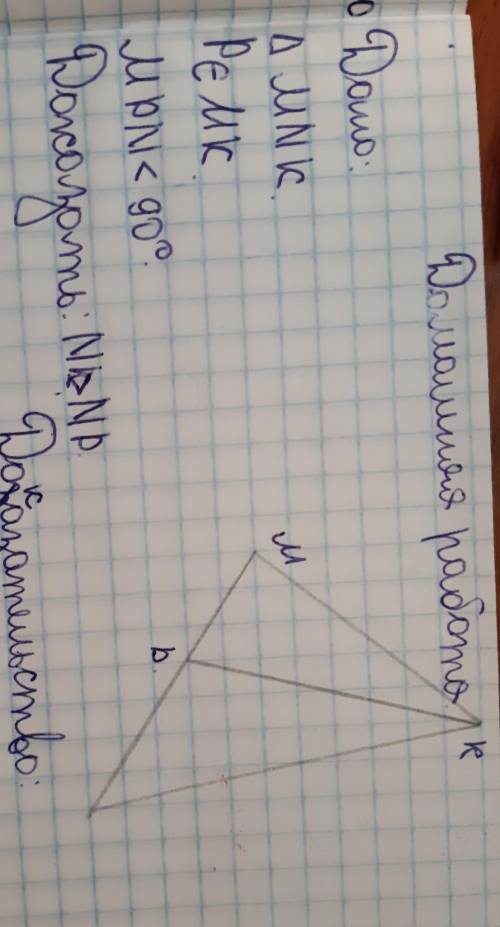 Домашняя работа.
Дано:
Δ MNK.
P∈ MK
MPN < 90°.
Доказать: NK>NP.
Доказательство:
M
K
P